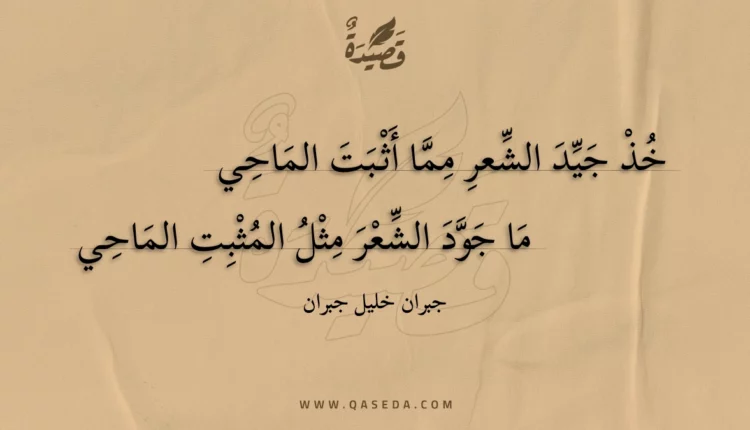 قَصِيدَةٌ
خُذْ جَيِّدَ الشِّعرِ مِمَّا أَثْبَتَ المَاحِي
مَا جَوَّدَ الشِّعْرَ مِثْلُ المُثْبِتِ المَاحِي
جبران خليل جبران
WWW.QASEDA.COM